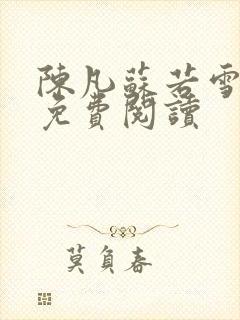 陳凡蘇若雪
免費閱讀
莫負春